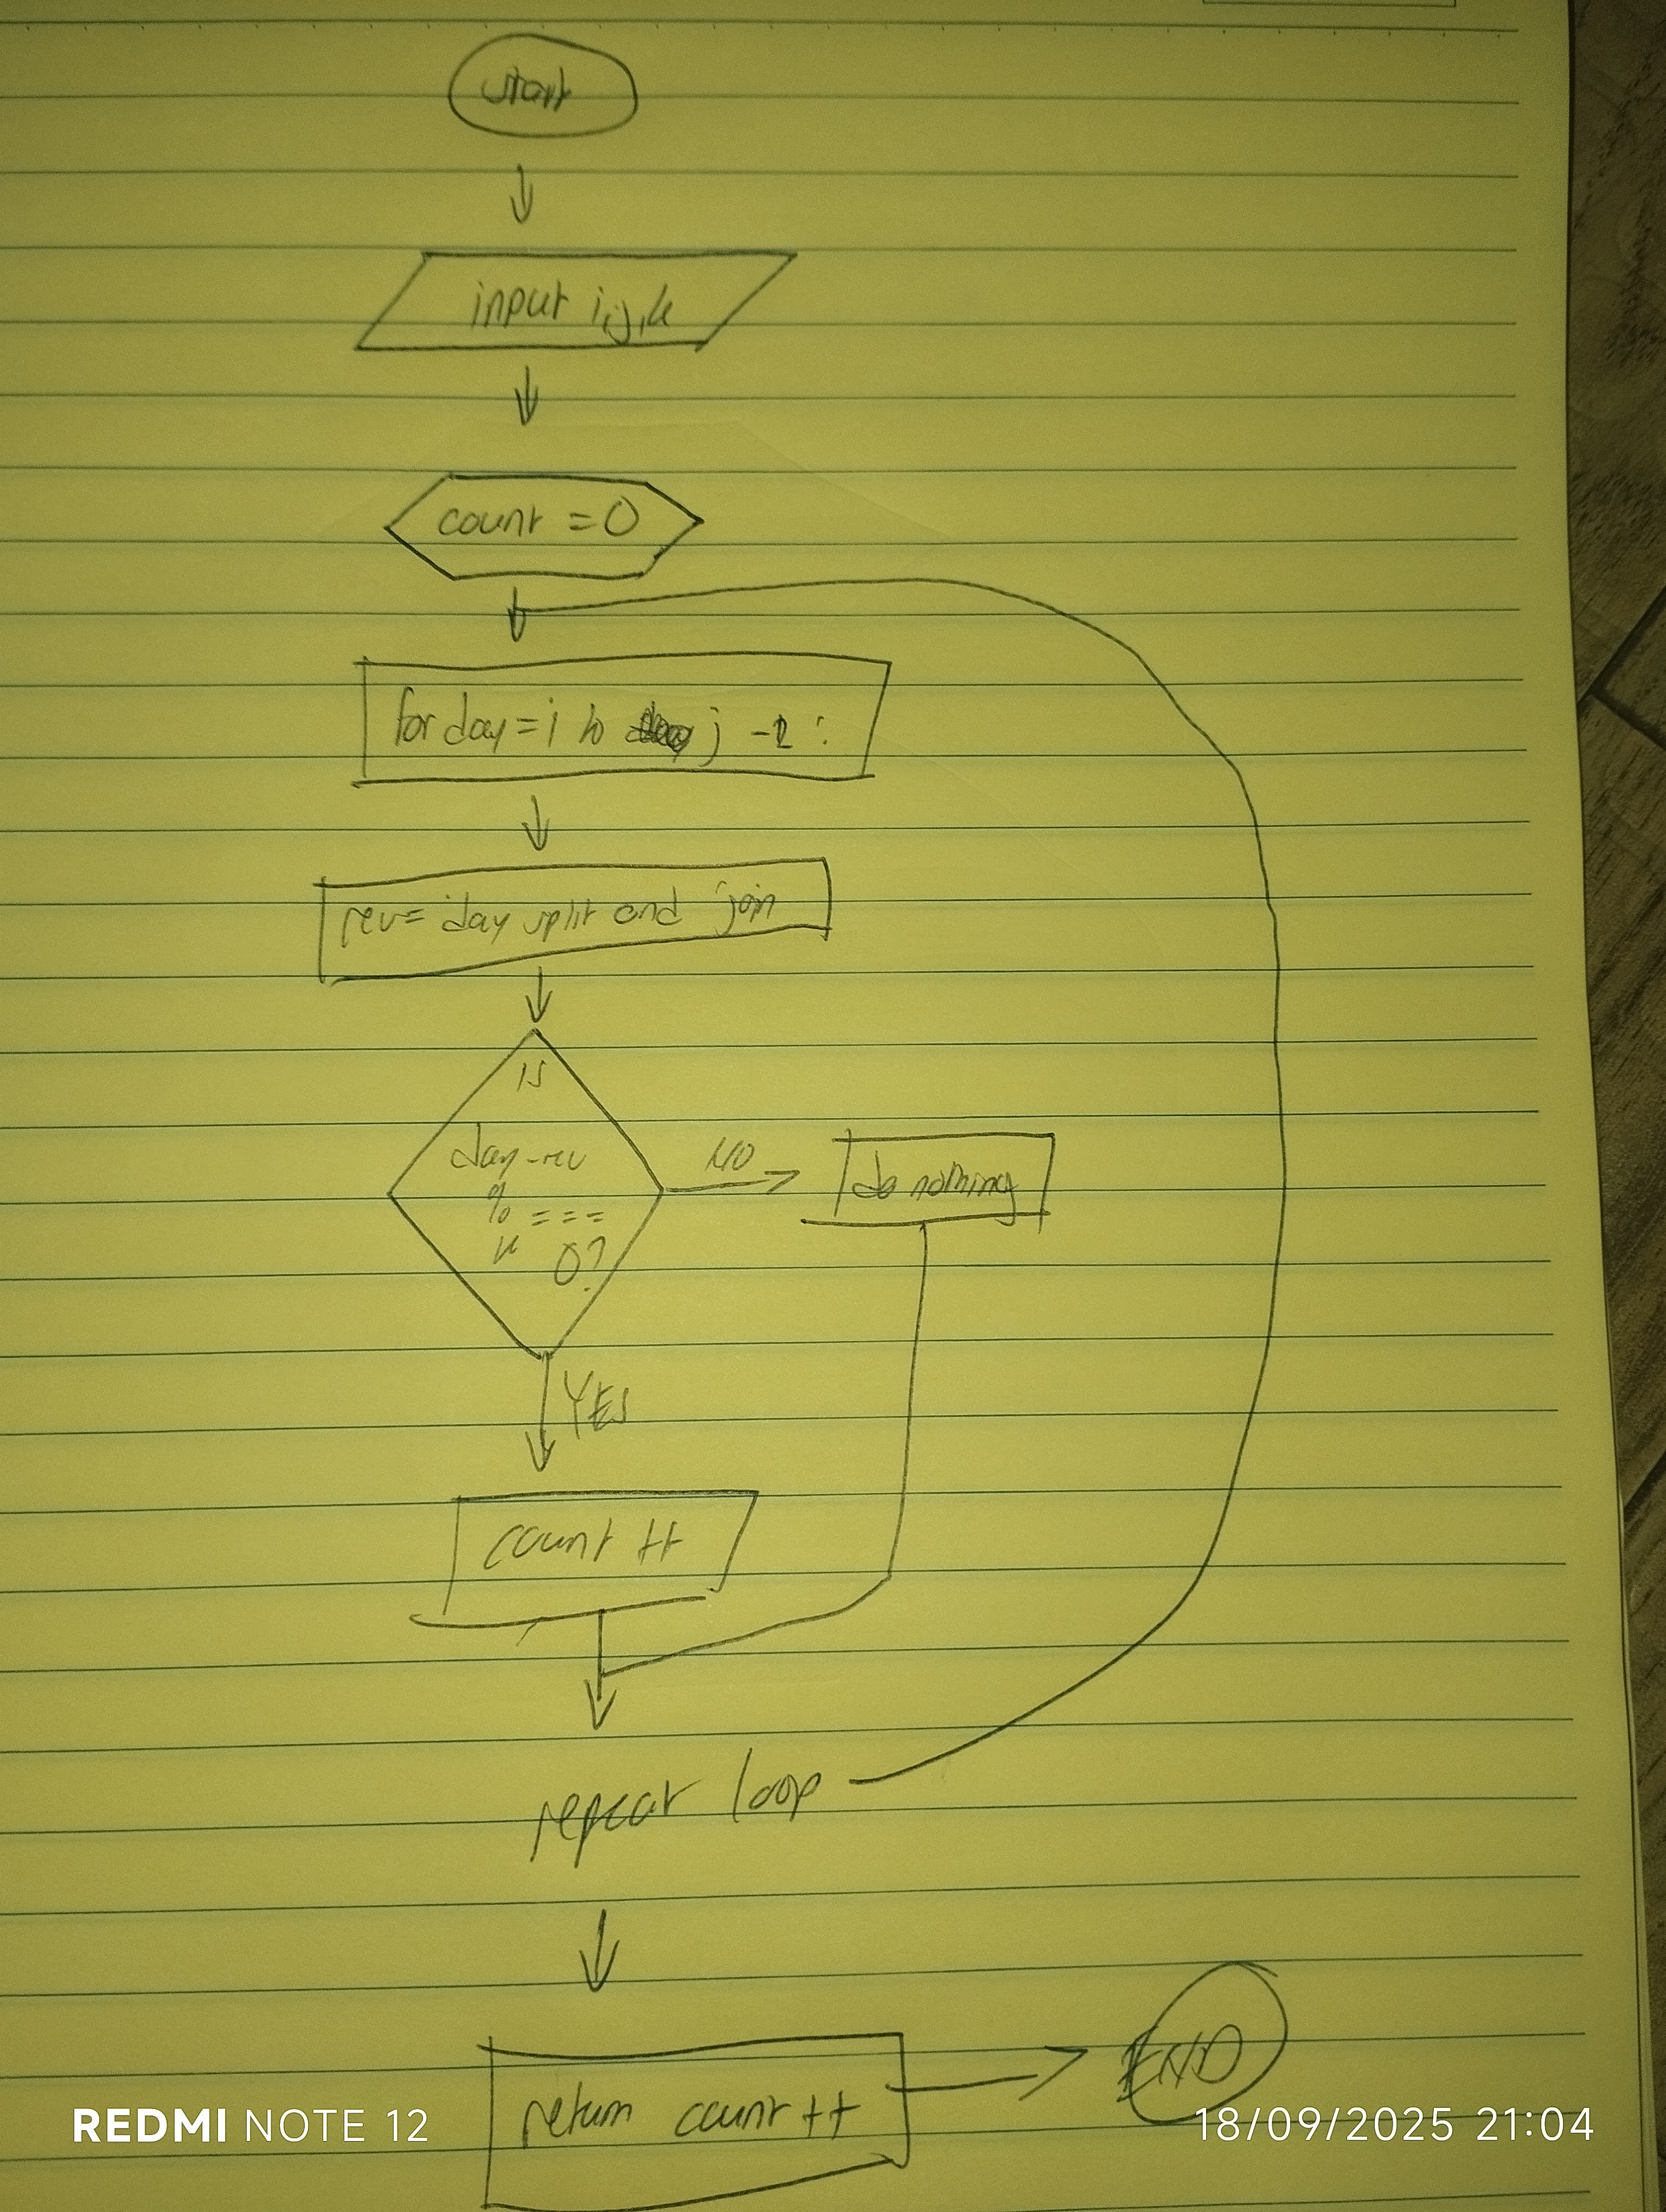 start
input i,j,k
count = 0
for day = i to j - 1 :
rev = day split and join
is
day-rev
% ===
k 0?
NO
do nothing
YES
count ++
repeat loop
return count ++
END
REDMI NOTE 12
18/09/2025 21:04